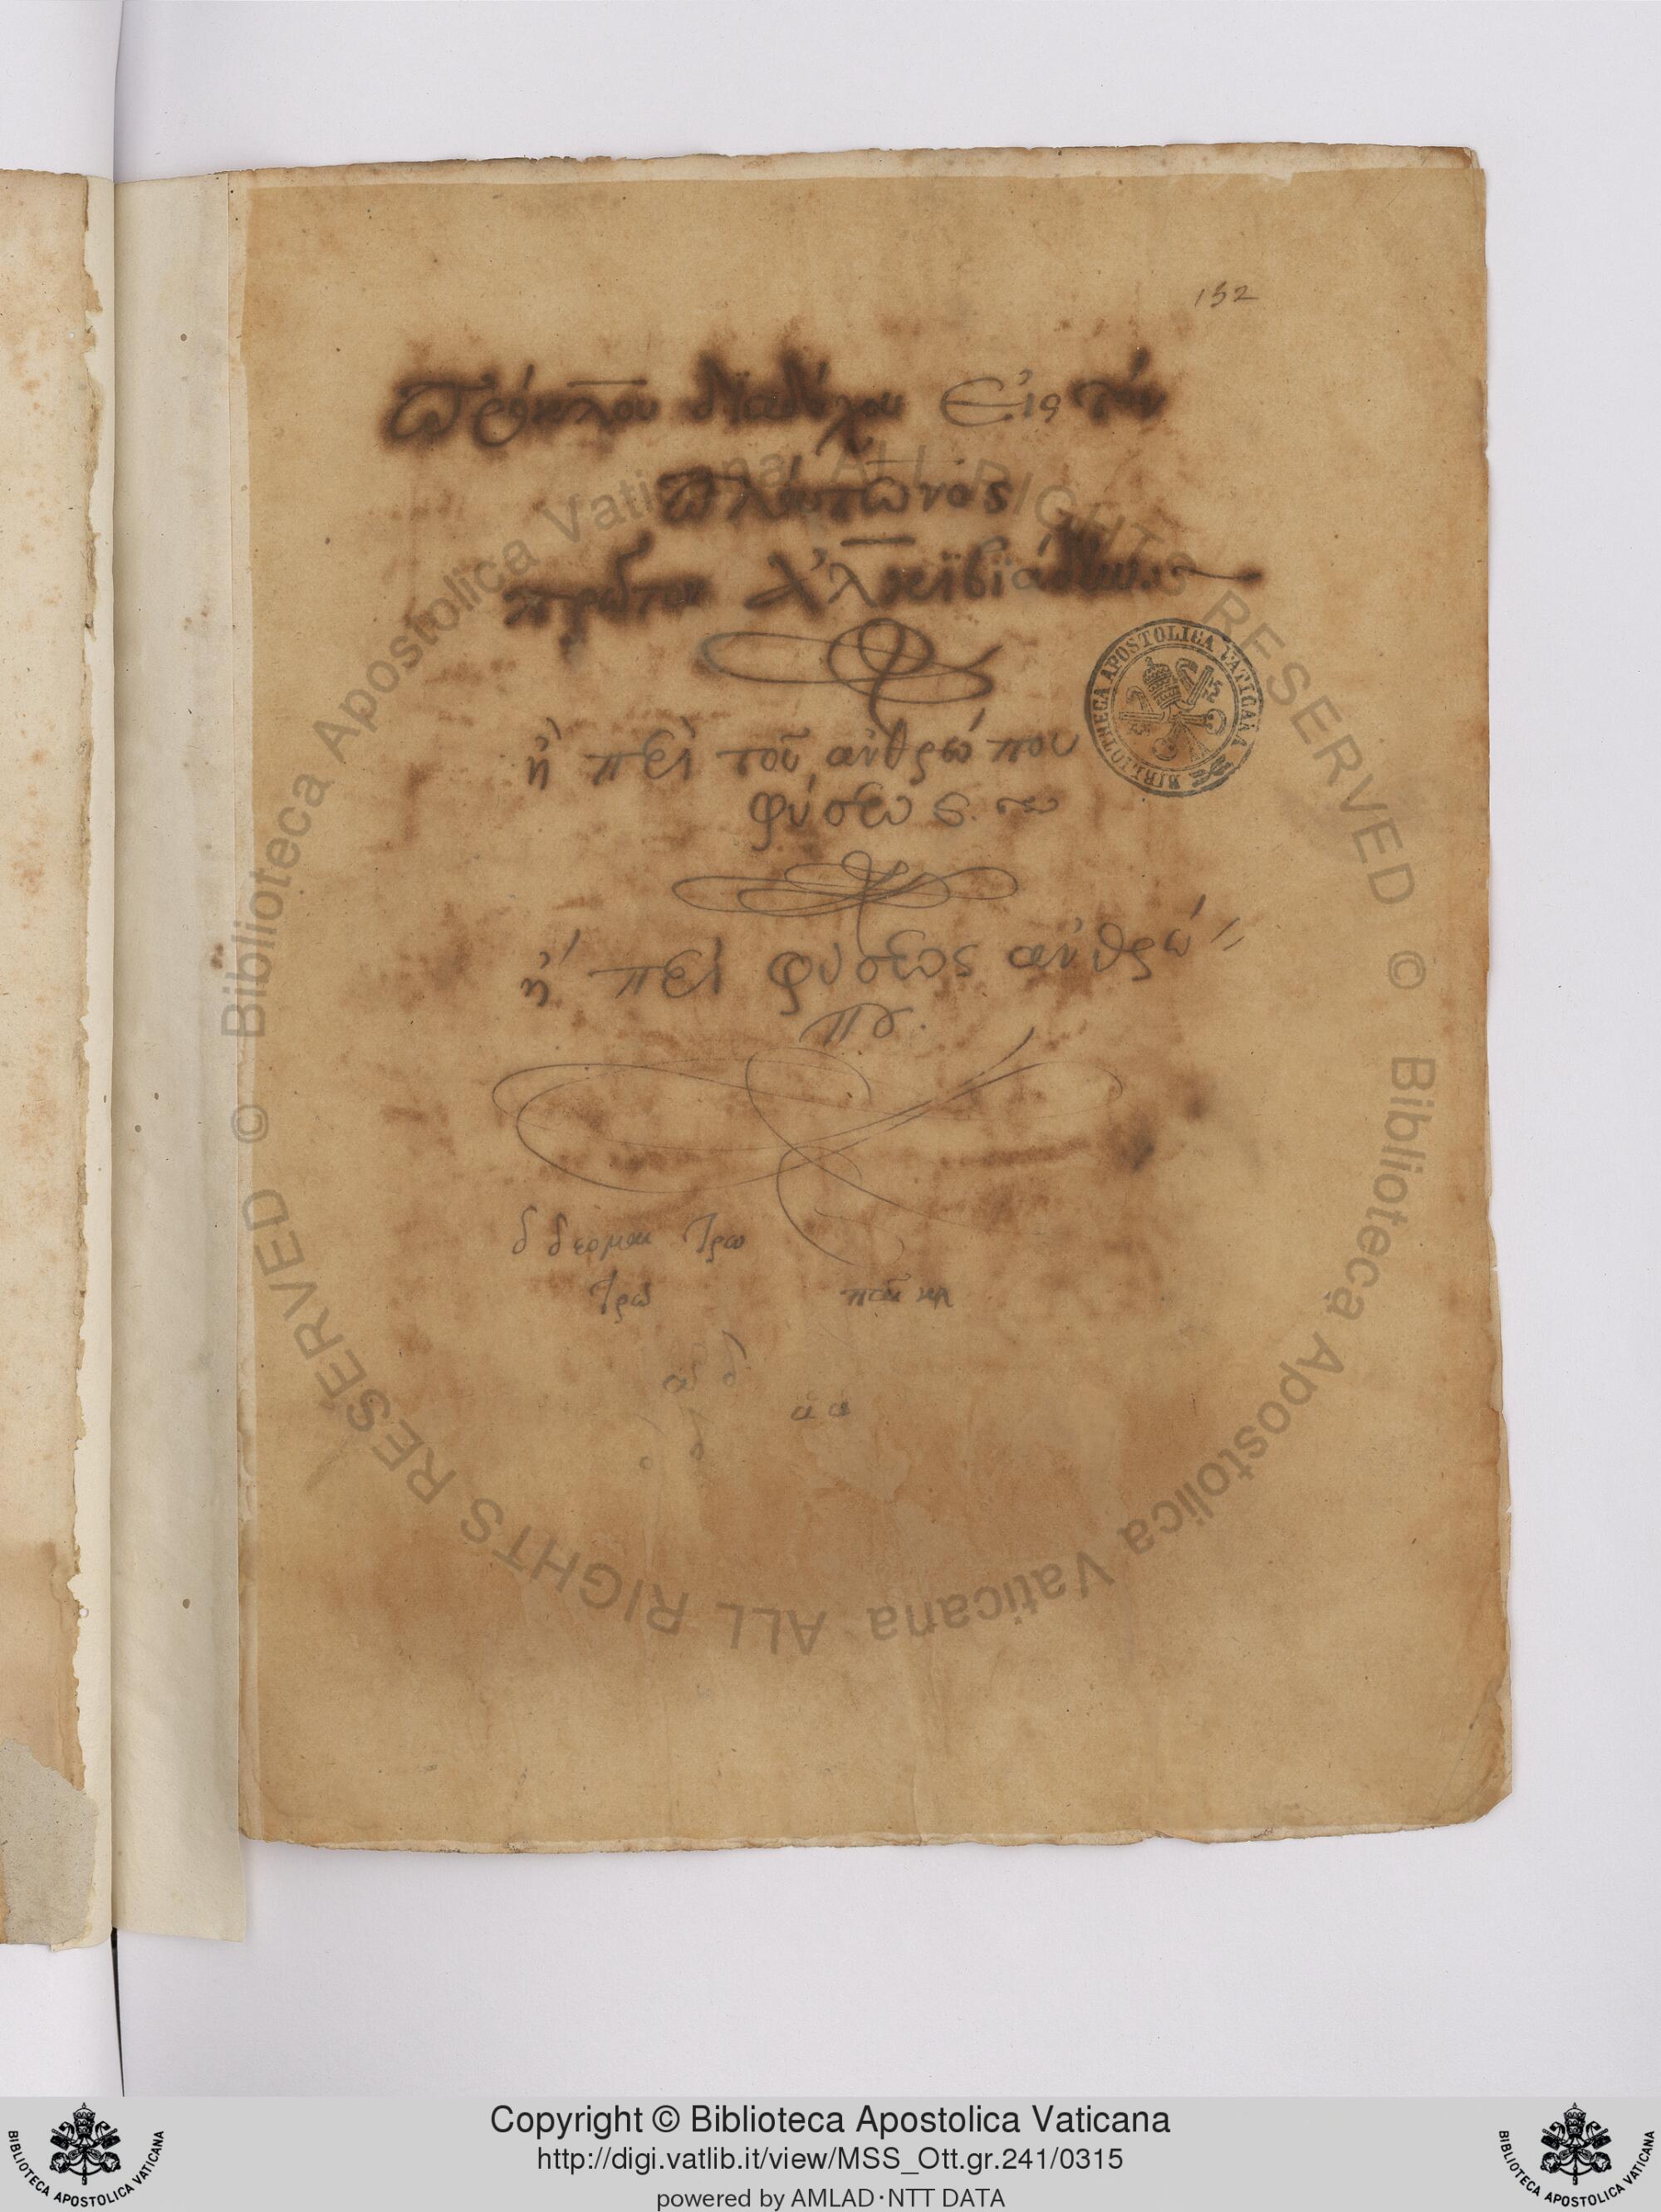 152
Πρόκλου διαδόχου Εἰς τὸν
Πλάτωνος
πρῶτον Ἀλκϊβϊάδην
BIBLIOTHECA APOSTOLICA VATICANA
ἢ πεὶ τοῦ ἀνθρώπου
φύσεως
ἢ πεὶ φύσεως ἀνθρώ
που.
© Biblioteca Apostolica Vaticana ALL RIGHTS RESERVED © Biblioteca Apostolica Vaticana ALL RIGHTS RESERVED
Copyright © Biblioteca Apostolica Vaticana
http://digi.vatlib.it/view/MSS_Ott.gr.241/0315
powered by AMLAD·NTT DATA
BIBLIOTECA APOSTOLICA VATICANA
BIBLIOTECA APOSTOLICA VATICANA